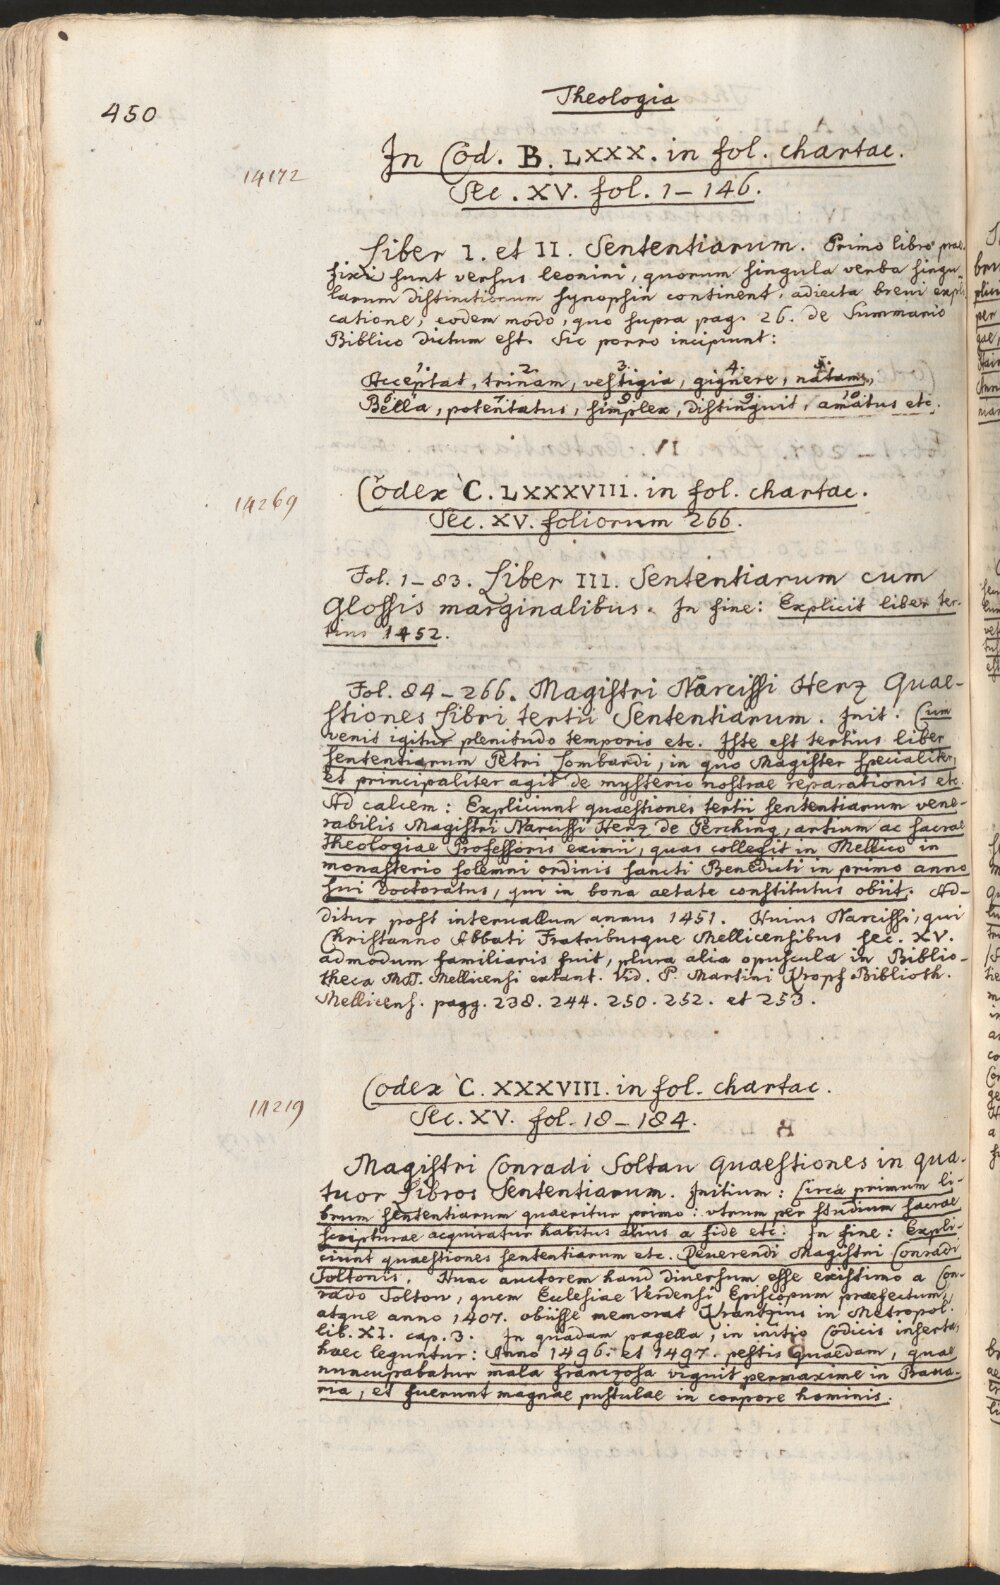 450
Theologia
14172
In Cod. B. LXXX. in fol. chartac.
Sec. XV. fol. 1–146.
Liber I. et II. Sententiarum. Primo libro prae-
fixi sunt versus leonini, quorum singula verba singu-
larum distinctionum synopsin continent, adiecta brevi expli-
catione, eodem modo, quo supra pag. 26. de Summario
Biblico dictum est. Sic porro incipiunt:
1. 2. 3. 4. 5.
Acceptat, trinam, vestigia, gignere, natam,
6 7 8 9 10
Bella, potentatus, simplex, distinguit, amatus etc.
14269
Codex C. LXXXVIII. in fol. chartac.
Sec. XV. foliorum 266.
Fol. 1–83. Liber III. Sententiarum cum
Glossis marginalibus. In fine: Explicit liber ter-
tius 1452.
Fol. 84–266. Magistri Narcissi Herz Quae-
stiones libri tertii Sententiarum. Init. Cum
venit igitur plenitudo temporis etc. Iste est tertius liber
sententiarum Petri Lombardi, in quo Magister specialiter,
et principaliter agit de mysterio nostrae reparationis etc.
Ad calcem: Expliciunt quaestiones tertii sententiarum vene-
rabilis Magistri Narcissi Herz de Perching, artium ac sacrae
theologiae Professoris eximii, quas collegit in Mellico in
monasterio solemni ordinis sancti Benedicti in primo anno
sui Doctoratus, qui in bona aetate constitutus obiit. Ad-
ditur post intervallum annus 1451. Huius Narcissi, qui
Christanno Abbati Fratribusque Mellicensibus sec. XV.
admodum familiaris fuit, plura alia opuscula in Biblio-
theca Mst. Mellicensi extant. Vid. P. Martini Kropf Biblioth.
Mellicens. pagg. 238. 244. 250. 252. et 253.
14219
Codex C. XXXVIII. in fol. chartac.
Sec. XV. fol. 18–184.
Magistri Conradi Soltau Quaestiones in qua-
tuor Libros Sententiarum. Initium: Circa primum li-
brum sententiarum quaeritur primo: utrum per studium sacrae
scripturae acquiratur habitus alius a fide etc. In fine: Expli-
ciunt quaestiones sententiarum etc. Reverendi Magistri Conradi
Soltonis. Hunc auctorem haud diversum esse existimo a Con-
rado Solton, quem Ecclesiae Verdensi Episcopum praefectum,
atque anno 1407. obiisse memorat Krantzius in Metropol.
lib. XI. cap. 3. In quadam pagella, in initio Codicis inserta,
haec leguntur: Anno 1496. et 1497. pestis quaedam, quae
nuncupabatur mala franzosa viguit permaxime in Bava-
ria, et fuerunt magnae pustulae in corpore hominis.